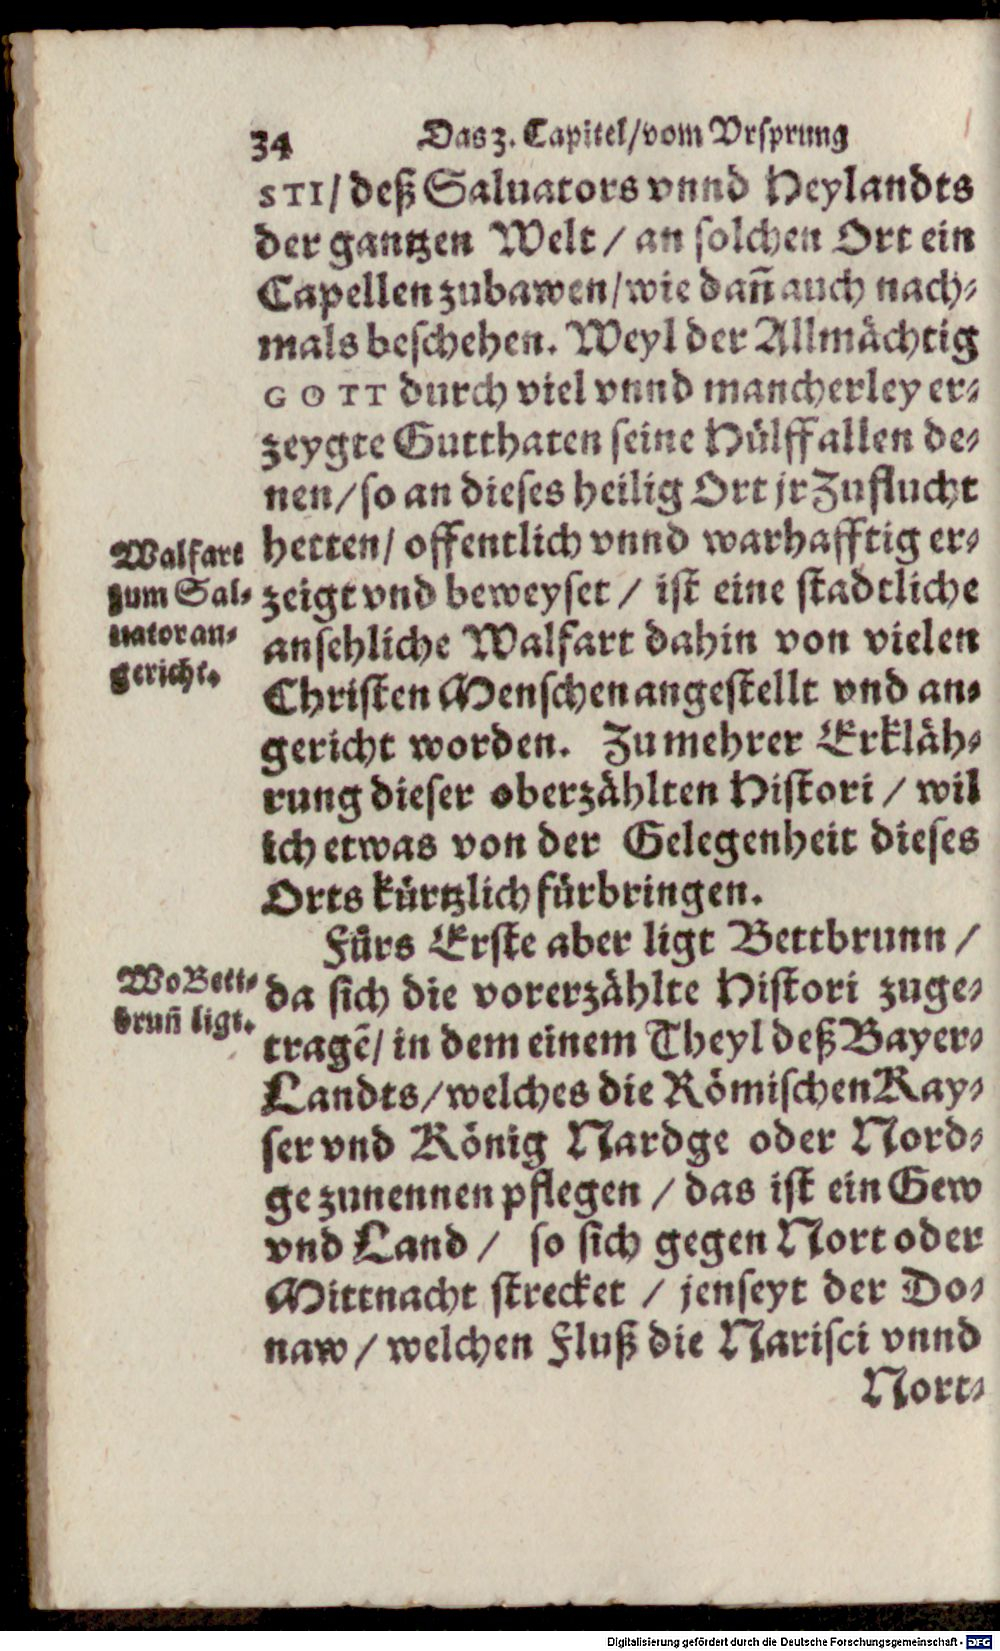 34 Das 3. Capitel/vom Vrsprung
STI/ deß Saluators vnnd Heylandts
der gantzen Welt / an solchen Ort ein
Capellen zubawen/wie dañ auch nach-
mals beschehen. Weyl der Allmächtig
GOTT durch viel vnnd mancherley er-
zeygte Gutthaten seine Hülff allen de-
nen/so an dieses heilig Ort jr Zuflucht
hetten/ offentlich vnnd warhafftig er-
Walfart
zum Sal-
uator an-
gericht.
zeigt vnd beweyset / ist eine stadtliche
ansehliche Walfart dahin von vielen
Christen Menschen angestellt vnd an-
gericht worden. Zu mehrer Erkläh-
rung dieser oberzählten Histori / wil
ich etwas von der Gelegenheit dieses
Orts kürtzlich fürbringen.
Fürs Erste aber ligt Bettbrunn /
Wo Bett-
bruñ ligt.
da sich die vorerzählte Histori zuge-
tragẽ/ in dem einem Theyl deß Bayer-
Landts/welches die Römischen Kay-
ser vnd König Nardge oder Nord-
ge zunennen pflegen / das ist ein Gew
vnd Land / so sich gegen Nort oder
Mittnacht strecket / jenseyt der Do-
naw / welchen Fluß die Narisci vnnd
Nort-
Digitalisierung gefördert durch die Deutsche Forschungsgemeinschaft - DFG